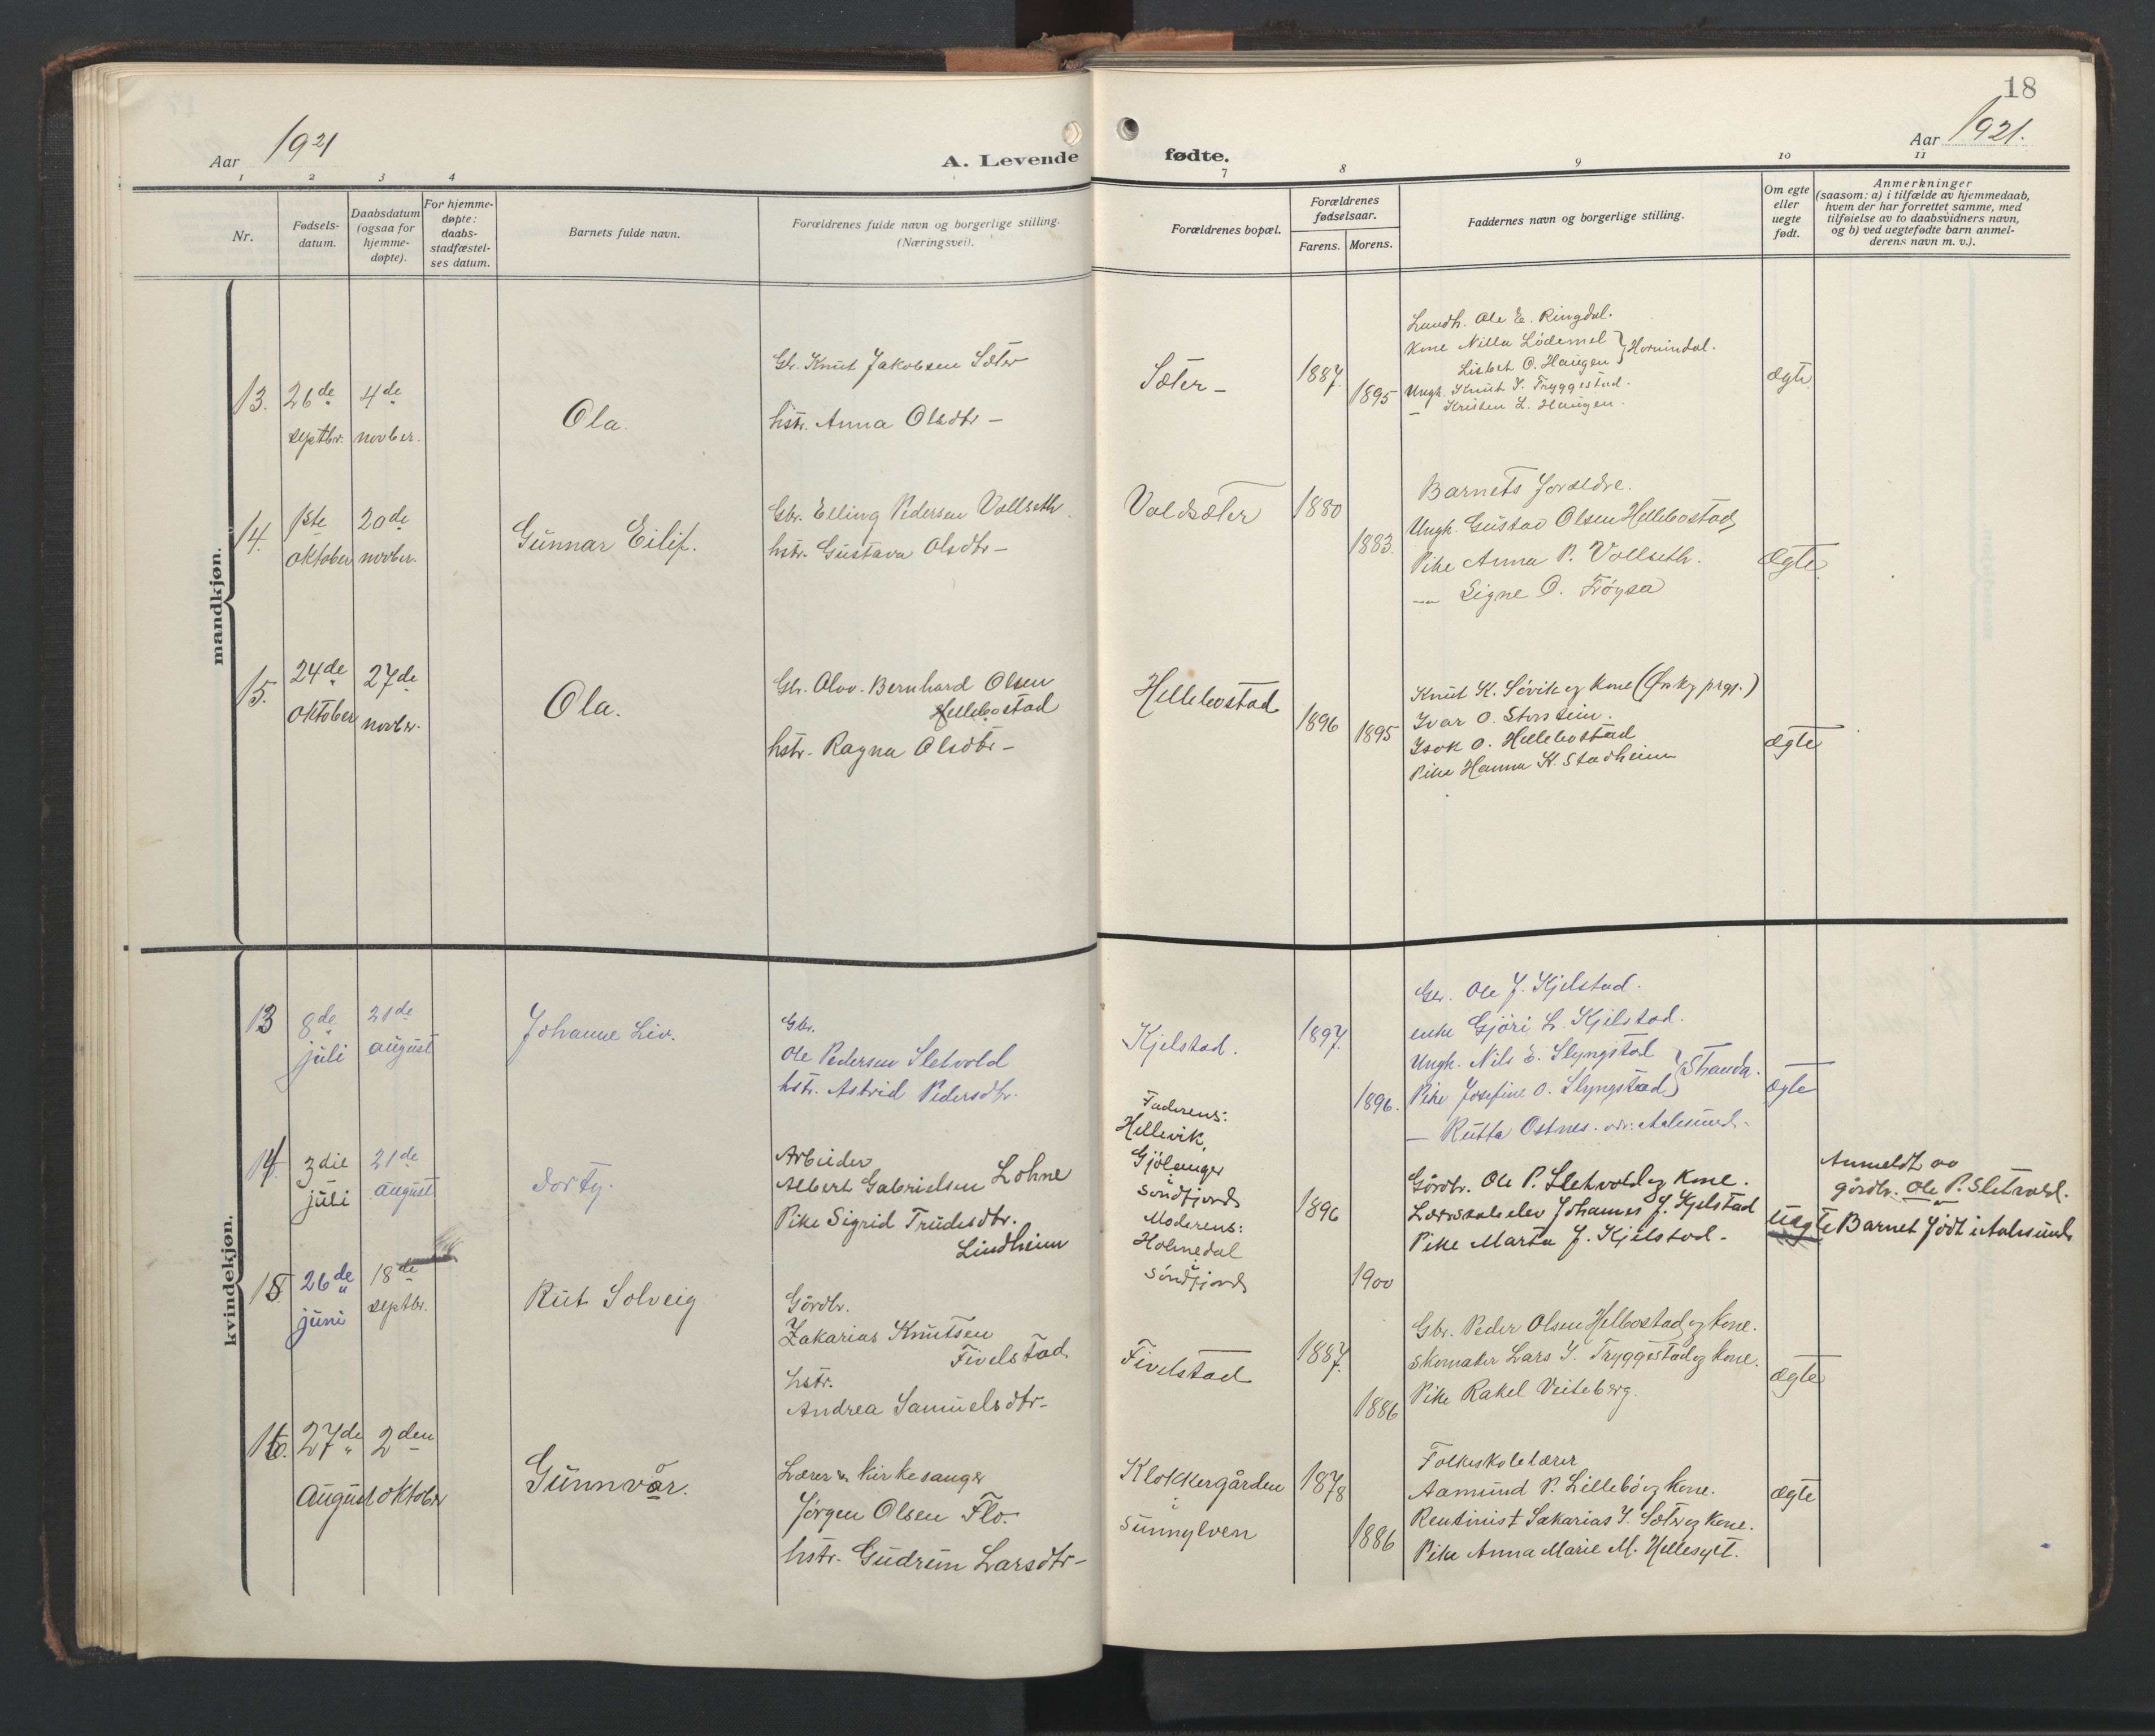 18
Aar 1921
A. Levende
fødte.
Aar 1921.
1 2 3 4
7 8 9 10 11
Nr.
Fødsels-
datum.
Daabsdatum
(ogsaa for
hjemme-
døpte).
For hjemme-
døpte:
daabs-
stadfæstel-
ses datum.
Barnets fulde navn.
Forældrenes fulde navn og borgerlige stilling.
(Næringsvei).
Forældrenes bopæl.
Forældrenes
fødselsaar.
Farens. Morens.
Faddernes navn og borgerlige stilling.
Om egte
eller
uegte
født.
Anmerkninger
(saasom: a) i tilfælde av hjemmedaab,
hvem der har forrettet samme, med
tilføielse av to daabsvidners navn,
og b) ved uegtefødte barn anmel-
derens navn m. v.).
mandkjøn.
13.
26de
septbr.
4de
novber.
Ola.
Gbr. Knut Jakobsen Sæter
hstr. Anna Olsdtr –
Sæter –
1887.
1895
Landh. Ole E. Ringdal.
Kone Nilla Lödemel
Lisbet O. Haugen } Hornindal.
Ungk. Knut I. Tryggestad.
— Kristen L. Haugen.
ægte.
14.
1ste
oktober
20de
novber.
Gunnar Eilif.
Gbr. Elling Pedersen Vollseth.
hstr. Gustava Olsdtr –
Voldsæter
1880
1883.
Barnets forældre.
Ungk. Gustav Olsen Hellebostad
Pike Anna P. Vollseth.
— Signe O. Fröysa
ægte.
15.
24de
oktober
27de
novbr.
Ola.
Gbr. Olav Bernhard Olsen
Hellebostad
hstr. Ragna Olsdtr –
Hellebostad
1896
1895
Knut K. Sövik og kone (Ørskog prgj.)
Ivar O. Storstein.
Isak O. Hellebostad
Pike Hanna K. Stadheim
ægte
kvindekjøn.
13
8de
juli
21de
august
Johanne Liv.
Gbr.
Ole Pedersen Sletvold
hstr. Astrid Pedersdtr.
Kjelstad.
1897.
1896.
Gbr. Ole J. Kjelstad.
enke Gjöri L. Kjelstad.
Ungk. Nils E. Slyngstad
Pike Josefine O. Slyngstad } Stranda.
— Rutta Ostnes. Aalesund.
ægte
14.
3die
juli
21de
august
Dorty.
Arbeider
Albert Gabrielsen Lohne
Pike Sigrid Trudesdtr.
Lindheim
Faderens:
Hellevik,
Gjölanger
i
Söndfjord
Moderens:
Holmedal
i
Söndfjord
1896
1900
Gårdbr. Ole P. Sletvold og kone.
Lærerskoleelev Johannes J. Kjelstad
Pike Marta J. Kjelstad.
uegte
Anmeldt av
gårdbr. Ole P. Sletvold.
Barnet födt i Aalesund
15.
26de
juni
18de
septbr.
Rut Solveig
Gårdbr.
Zakarias Knutsen
Fivelstad
hstr.
Andrea Samuelsdtr –
Fivelstad
1887.
1886
Gbr. Peder Olsen Hellbostad og kone.
Skomaker Lars I. Tryggestad og kone.
Pike Rakel Veiteberg.
ægte
16.
27de
August
2den
oktober
Gunnvor.
Lærer & kirkesanger
Jørgen Olsen Flo.
hstr. Gudrun Larsdtr –
Klokkergården
i
Sunnylven
1878
1886
Folkeskolelærer
Aamund P. Lillebö og kone.
Rentinist Sakarias I. Sæter og kone.
Pike Anna Marie M. Hellesylt.
ægte